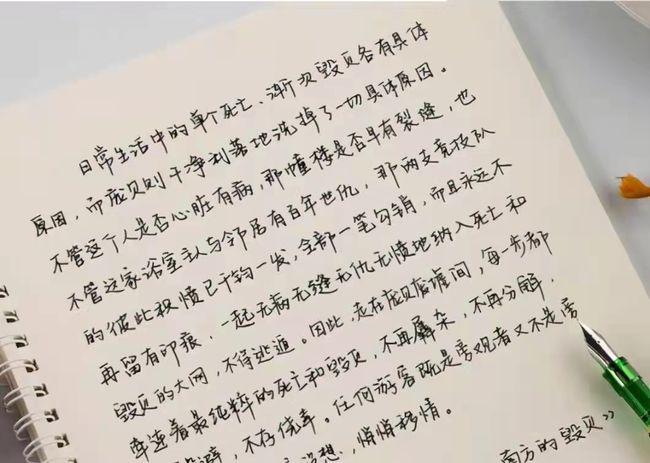 日常生活中的单个死亡、渐次毁灭各有具体
原因，而庞贝则干净利落地洗掉了一切具体原因。
不管这个人是否心脏有病，那幢楼是否早有裂缝，也
不管这家浴室主人与邻居有百年世仇，那两支竞技队
的彼此积愤已千钧一发，全部一笔勾销，而且永远不
再留有印痕，一起无病无缝无仇无愤地纳入死亡和
毁灭的大网，不得逃遁。因此，走在庞贝废墟间，每一步都
牵连着最纯粹的死亡和毁灭，不再羼杂，不再分解，
避，不存侥幸。任何游客既是旁观者又不是旁
想，悄悄移情。
南方的毁灭》